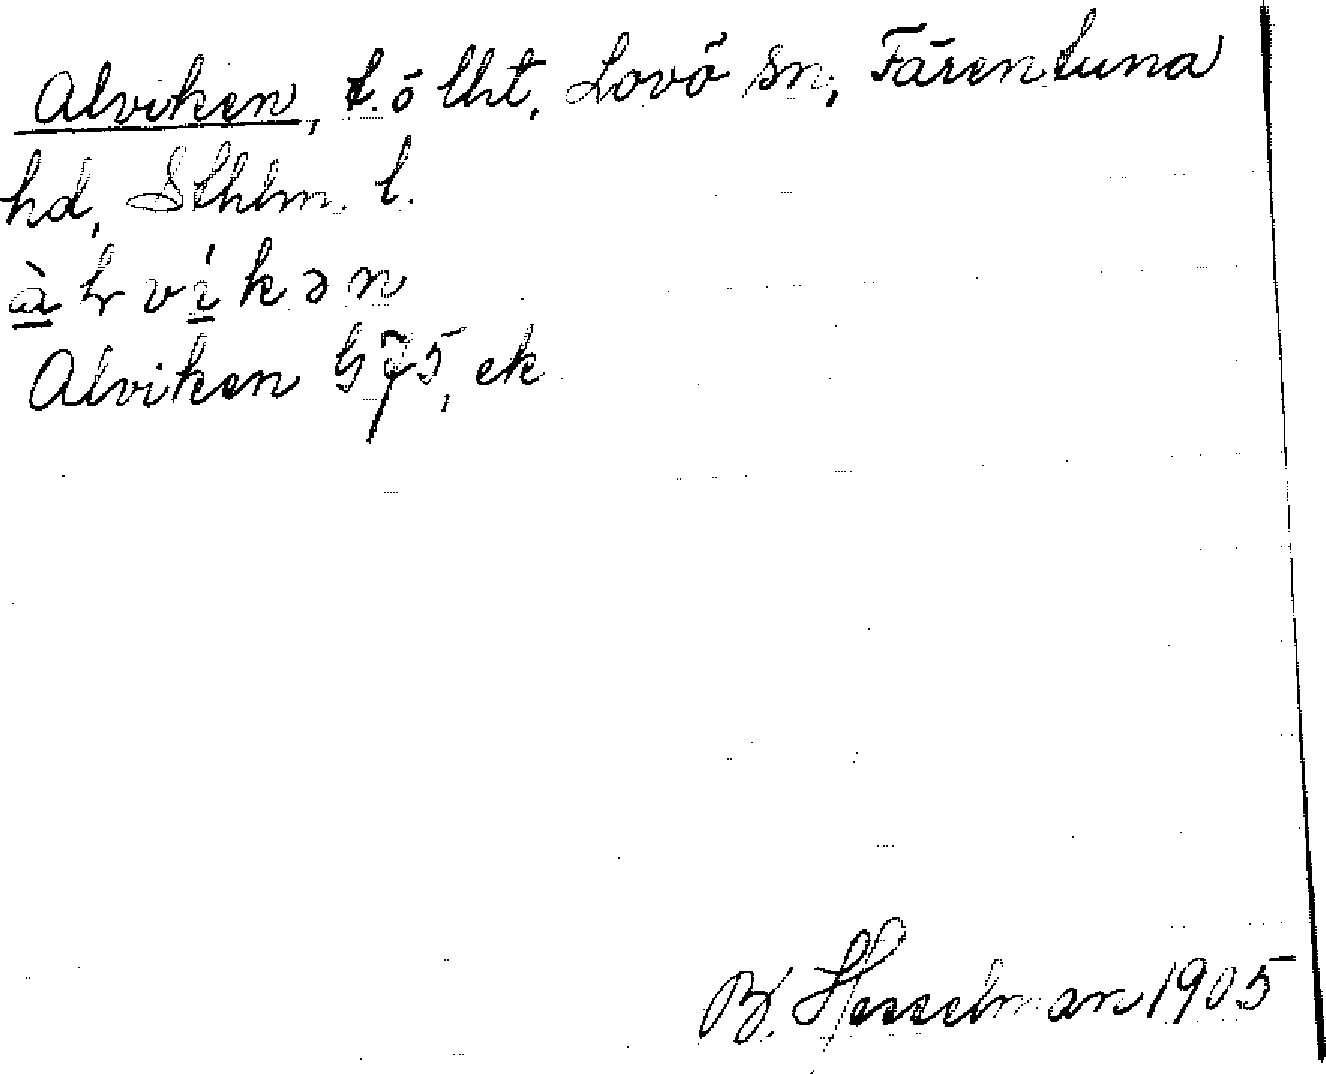 Alviken, t. o lht, Lovö sn, Färentuna
hd, Sthlm. l.
Alviken G75, ek
B. Hesselman 1905